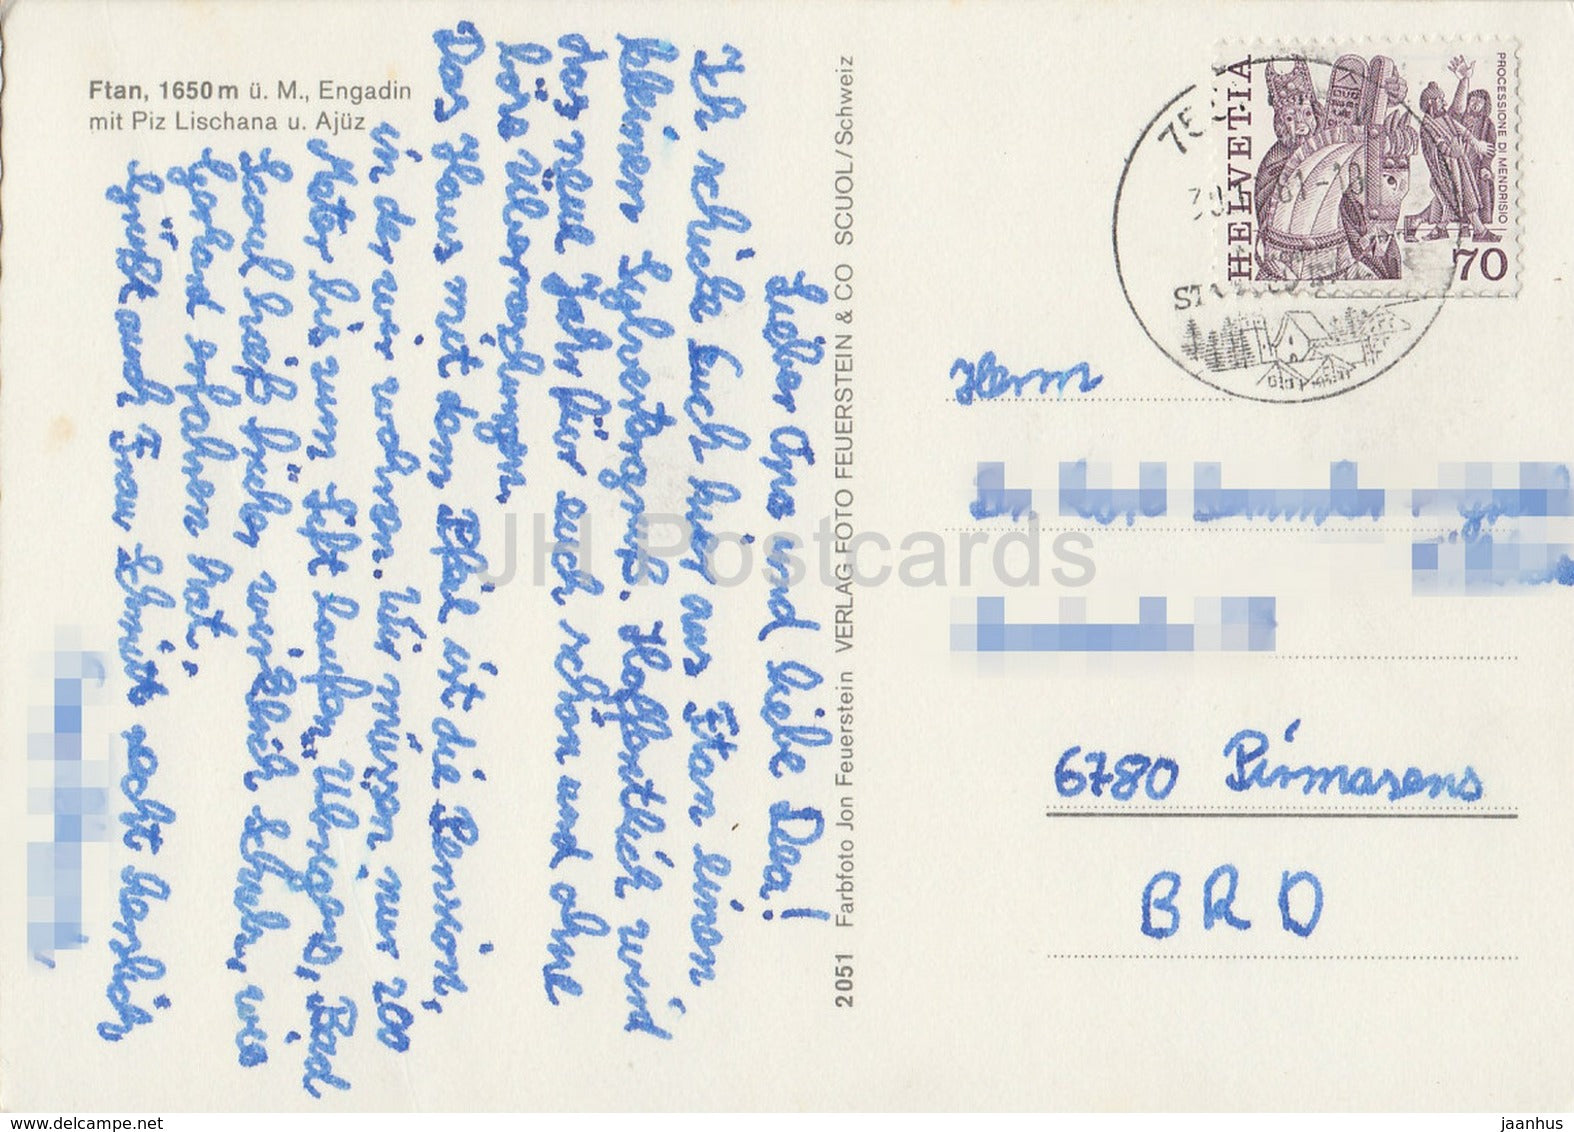 Ftan, 1650 m ü. M., Engadin
mit Piz Lischana u. Ajüz
Lieber Opa und liebe Dea!
Ich schicke Euch hier aus Ftan einen
kleinen Sylvestergruß. Hoffentlich wird
das neue Jahr für euch schön und ohne
böse Überraschungen.
Das Haus mit dem Pfeil ist die Pension,
in der wir wohnen. Wir müssen nur 200
Meter bis zum Lift laufen. Übrigens, Bad
Scoul hieß früher wirklich Schuls, wie
Gerhard erfahren hat.
Grüßt auch Frau Schmitt recht herzlich
2051 Farbfoto Jon Feuerstein VERLAG FOTO FEUERSTEIN & CO SCUOL/Schweiz
HELVETIA
PROCESSIONE DI MENDRISIO
70
Herrn
6780 Pirmasens
BRD
JH Postcards
www.delcampe.net
jaanhus